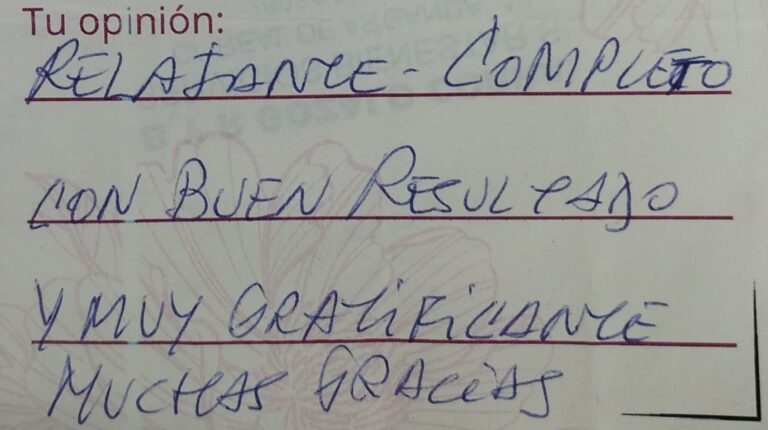 Tu opinión:
RELAJANTE - COMPLETO
CON BUEN RESULTADO
Y MUY GRATIFICANTE
MUCHAS GRACIAS